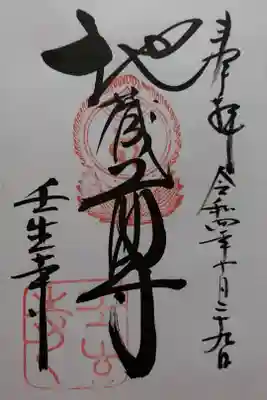 奉拝
令和四年十月二十九日
地蔵尊
壬生寺